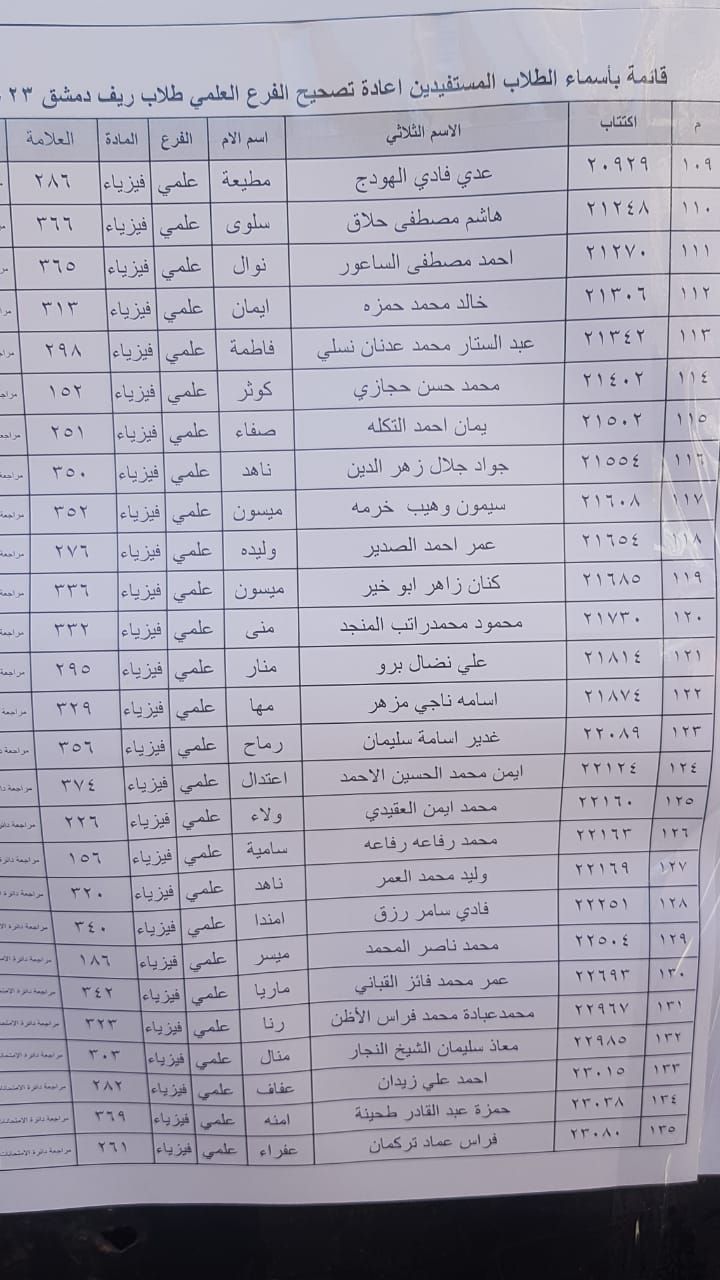 قائمة بأسماء الطلاب المستفيدين اعادة تصحيح الفرع العلمي طلاب ريف دمشق ٢٣
م اكتتاب الاسم الثلاثي اسم الام الفرع المادة العلامة
١٠٩ ٢٠٩٢٩ عدي فادي الهودج مطيعة علمي فيزياء ٢٨٦
١١٠ ٢١٢٤٨ هاشم مصطفى حلاق سلوى علمي فيزياء ٣٦٦
١١١ ٢١٢٧٠ احمد مصطفى الساعور نوال علمي فيزياء ٣٦٥
١١٢ ٢١٣٠٦ خالد محمد حمزه ايمان علمي فيزياء ٣١٣
١١٣ ٢١٣٤٢ عبد الستار محمد عدنان نسلي فاطمة علمي فيزياء ٢٩٨
١١٤ ٢١٤٠٢ محمد حسن حجازي كوثر علمي فيزياء ١٥٢
١١٥ ٢١٥٠٢ يمان احمد التكله صفاء علمي فيزياء ٢٥١
١١٦ ٢١٥٥٤ جواد جلال زهر الدين ناهد علمي فيزياء ٣٥٠ مراجعة
١١٧ ٢١٦٠٨ سيمون وهيب خرمه ميسون علمي فيزياء ٣٥٢ مراجعة
١١٨ ٢١٦٥٤ عمر احمد الصدير وليده علمي فيزياء ٢٧٦ مراجعة
١١٩ ٢١٦٨٥ كنان زاهر ابو خير ميسون علمي فيزياء ٣٣٦ مراجعة
١٢٠ ٢١٧٣٠ محمود محمدراتب المنجد منى علمي فيزياء ٣٣٢ مراجعة
١٢١ ٢١٨١٤ علي نضال برو منار علمي فيزياء ٢٩٥ مراجعة
١٢٢ ٢١٨٧٤ اسامه ناجي مزهر مها علمي فيزياء ٣٢٩ مراجعة
١٢٣ ٢٢٠٨٩ غدير اسامة سليمان رماح علمي فيزياء ٣٥٦ مراجعة
١٢٤ ٢٢١٢٤ ايمن محمد الحسين الاحمد اعتدال علمي فيزياء ٣٧٤ مراجعة
١٢٥ ٢٢١٦٠ محمد ايمن العقيدي ولاء علمي فيزياء ٢٢٦ مراجعة دائرة
١٢٦ ٢٢١٦٣ محمد رفاعه رفاعه سامية علمي فيزياء ١٥٦ مراجعة دائرة
١٢٧ ٢٢١٦٩ وليد محمد العمر ناهد علمي فيزياء ٣٢٠ مراجعة دائرة
١٢٨ ٢٢٢٥١ فادي سامر رزق امندا علمي فيزياء ٣٤٠ مراجعة دائرة
١٢٩ ٢٢٥٠٤ محمد ناصر المحمد ميسر علمي فيزياء ١٨٦ مراجعة دائرة
١٣٠ ٢٢٦٩٣ عمر محمد فائز القباني ماريا علمي فيزياء ٣٤٢ مراجعة دائرة
١٣١ ٢٢٩٦٧ محمدعبادة محمد فراس الأظن رنا علمي فيزياء ٣٢٣ مراجعة دائرة
١٣٢ ٢٢٩٨٥ معاذ سليمان الشيخ النجار منال علمي فيزياء ٣٠٣ مراجعة دائرة
١٣٣ ٢٣٠١٥ احمد علي زيدان عفاف علمي فيزياء ٢٨٢ مراجعة دائرة
١٣٤ ٢٣٠٣٨ حمزة عبد القادر طحينة امنه علمي فيزياء ٣٦٩ مراجعة دائرة
١٣٥ ٢٣٠٨٠ فراس عماد تركمان عفراء علمي فيزياء ٢٦١ مراجعة دائرة الامتحانات